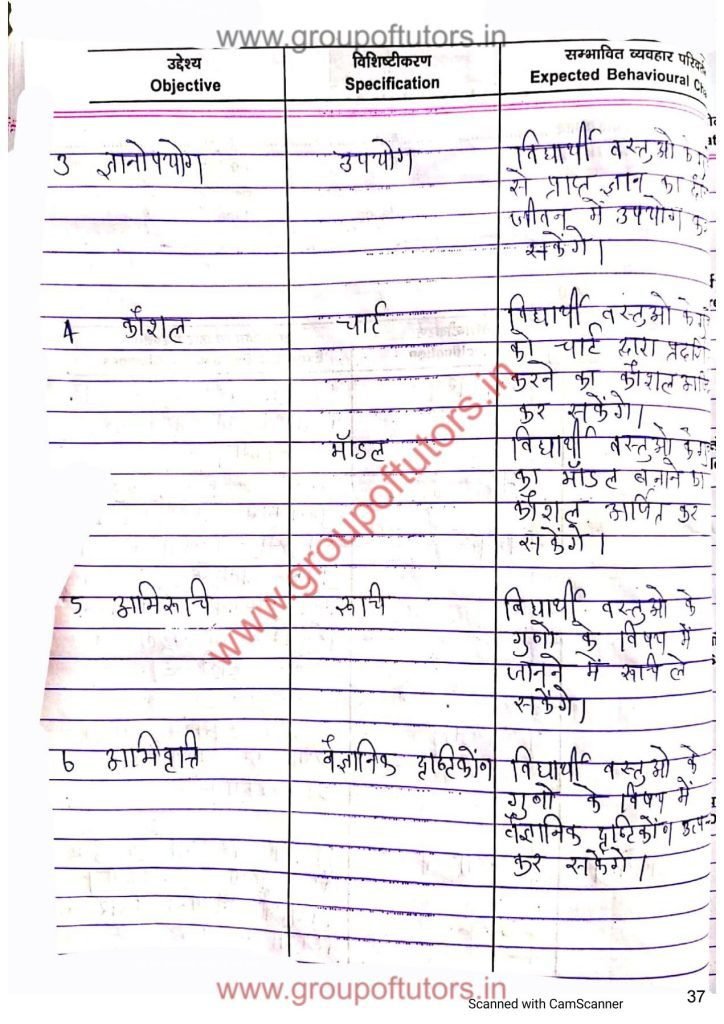 www.groupoftutors.in
उद्देश्य
Objective
विशिष्टीकरण
Specification
सम्भावित व्यवहार
Expected Behavioural
3 ज्ञानोपयोग
उपयोग
विद्यार्थी वस्तुओ के
से प्राप्त ज्ञान का
जीवन में उपयोग
सकेंगे।
4 कौशल
चार्ट
विद्यार्थी वस्तुओ के
को चार्ट द्वारा
करने का कौशल
कर सकेंगे।
मॉडल
विद्यार्थी वस्तुओ के
का मॉडल बनाने का
कौशल अर्पित कर
सकेंगे।
5 अभिरूचि
रूचि
विद्यार्थी वस्तुओ के
गुणो के विषय में
जानने में रूचि ले
सकेंगे।
6 अभिवृत्ति
वैज्ञानिक दृष्टिकोण
विद्यार्थी वस्तुओ के
गुणो के विषय में
वैज्ञानिक दृष्टिकोंण
कर सकेंगे।
www.groupoftutors.in
www.groupoftutors.in
Scanned with CamScanner
37